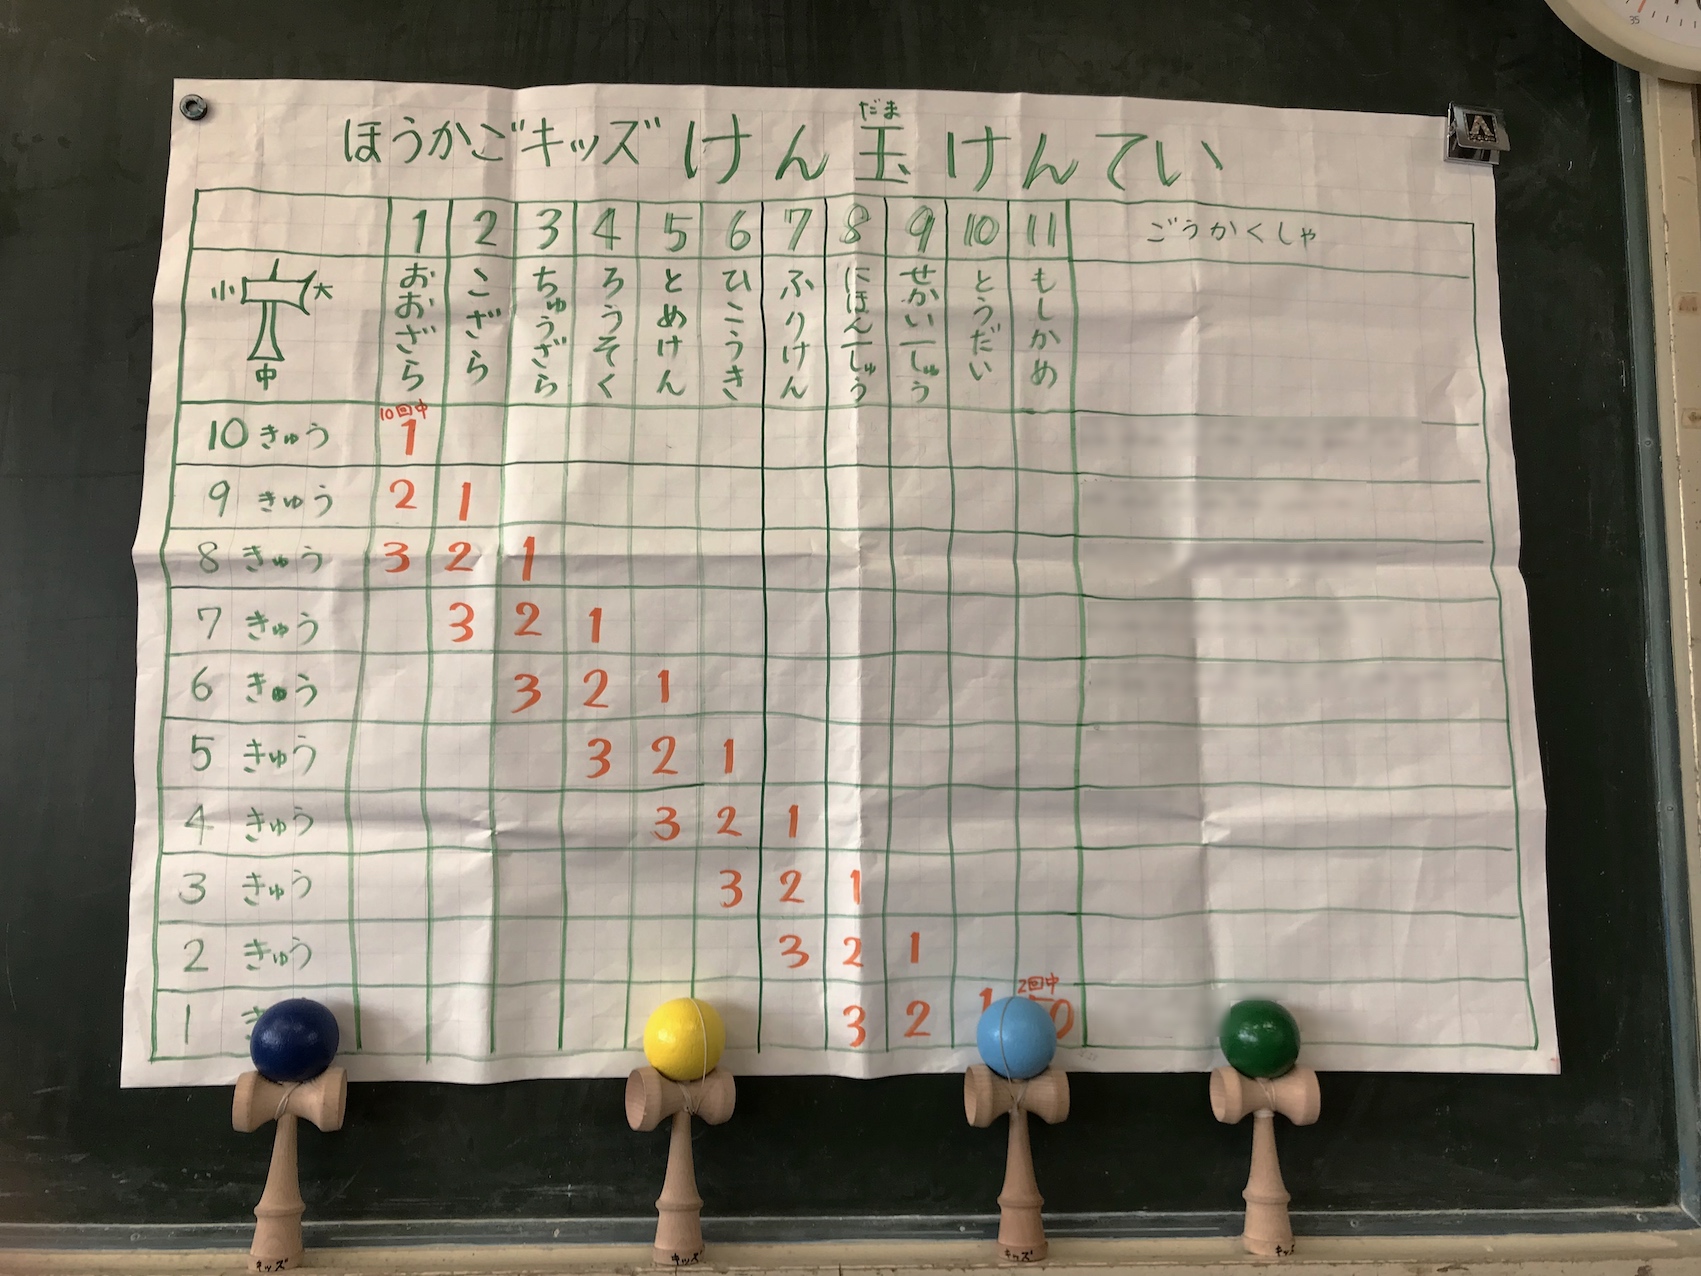 だま
ほうかごキッズ けん玉けんてい
1 2 3 4 5 6 7 8 9 10 11 ごうかくしゃ
小 大
中
おおざら
こざら
ちゅうざら
ろうそく
とめけん
ひこうき
ふりけん
にほん一しゅう
せかい一しゅう
とうだい
もしかめ
10回中
10 きゅう 1
9 きゅう 2 1
8 きゅう 3 2 1
7 きゅう 3 2 1
6 きゅう 3 2 1
5 きゅう 3 2 1
4 きゅう 3 2 1
3 きゅう 3 2 1
2 きゅう 3 2 1
2回中
1 き 3 2 1
キッズ
キッズ
キッズ
キッズ
35